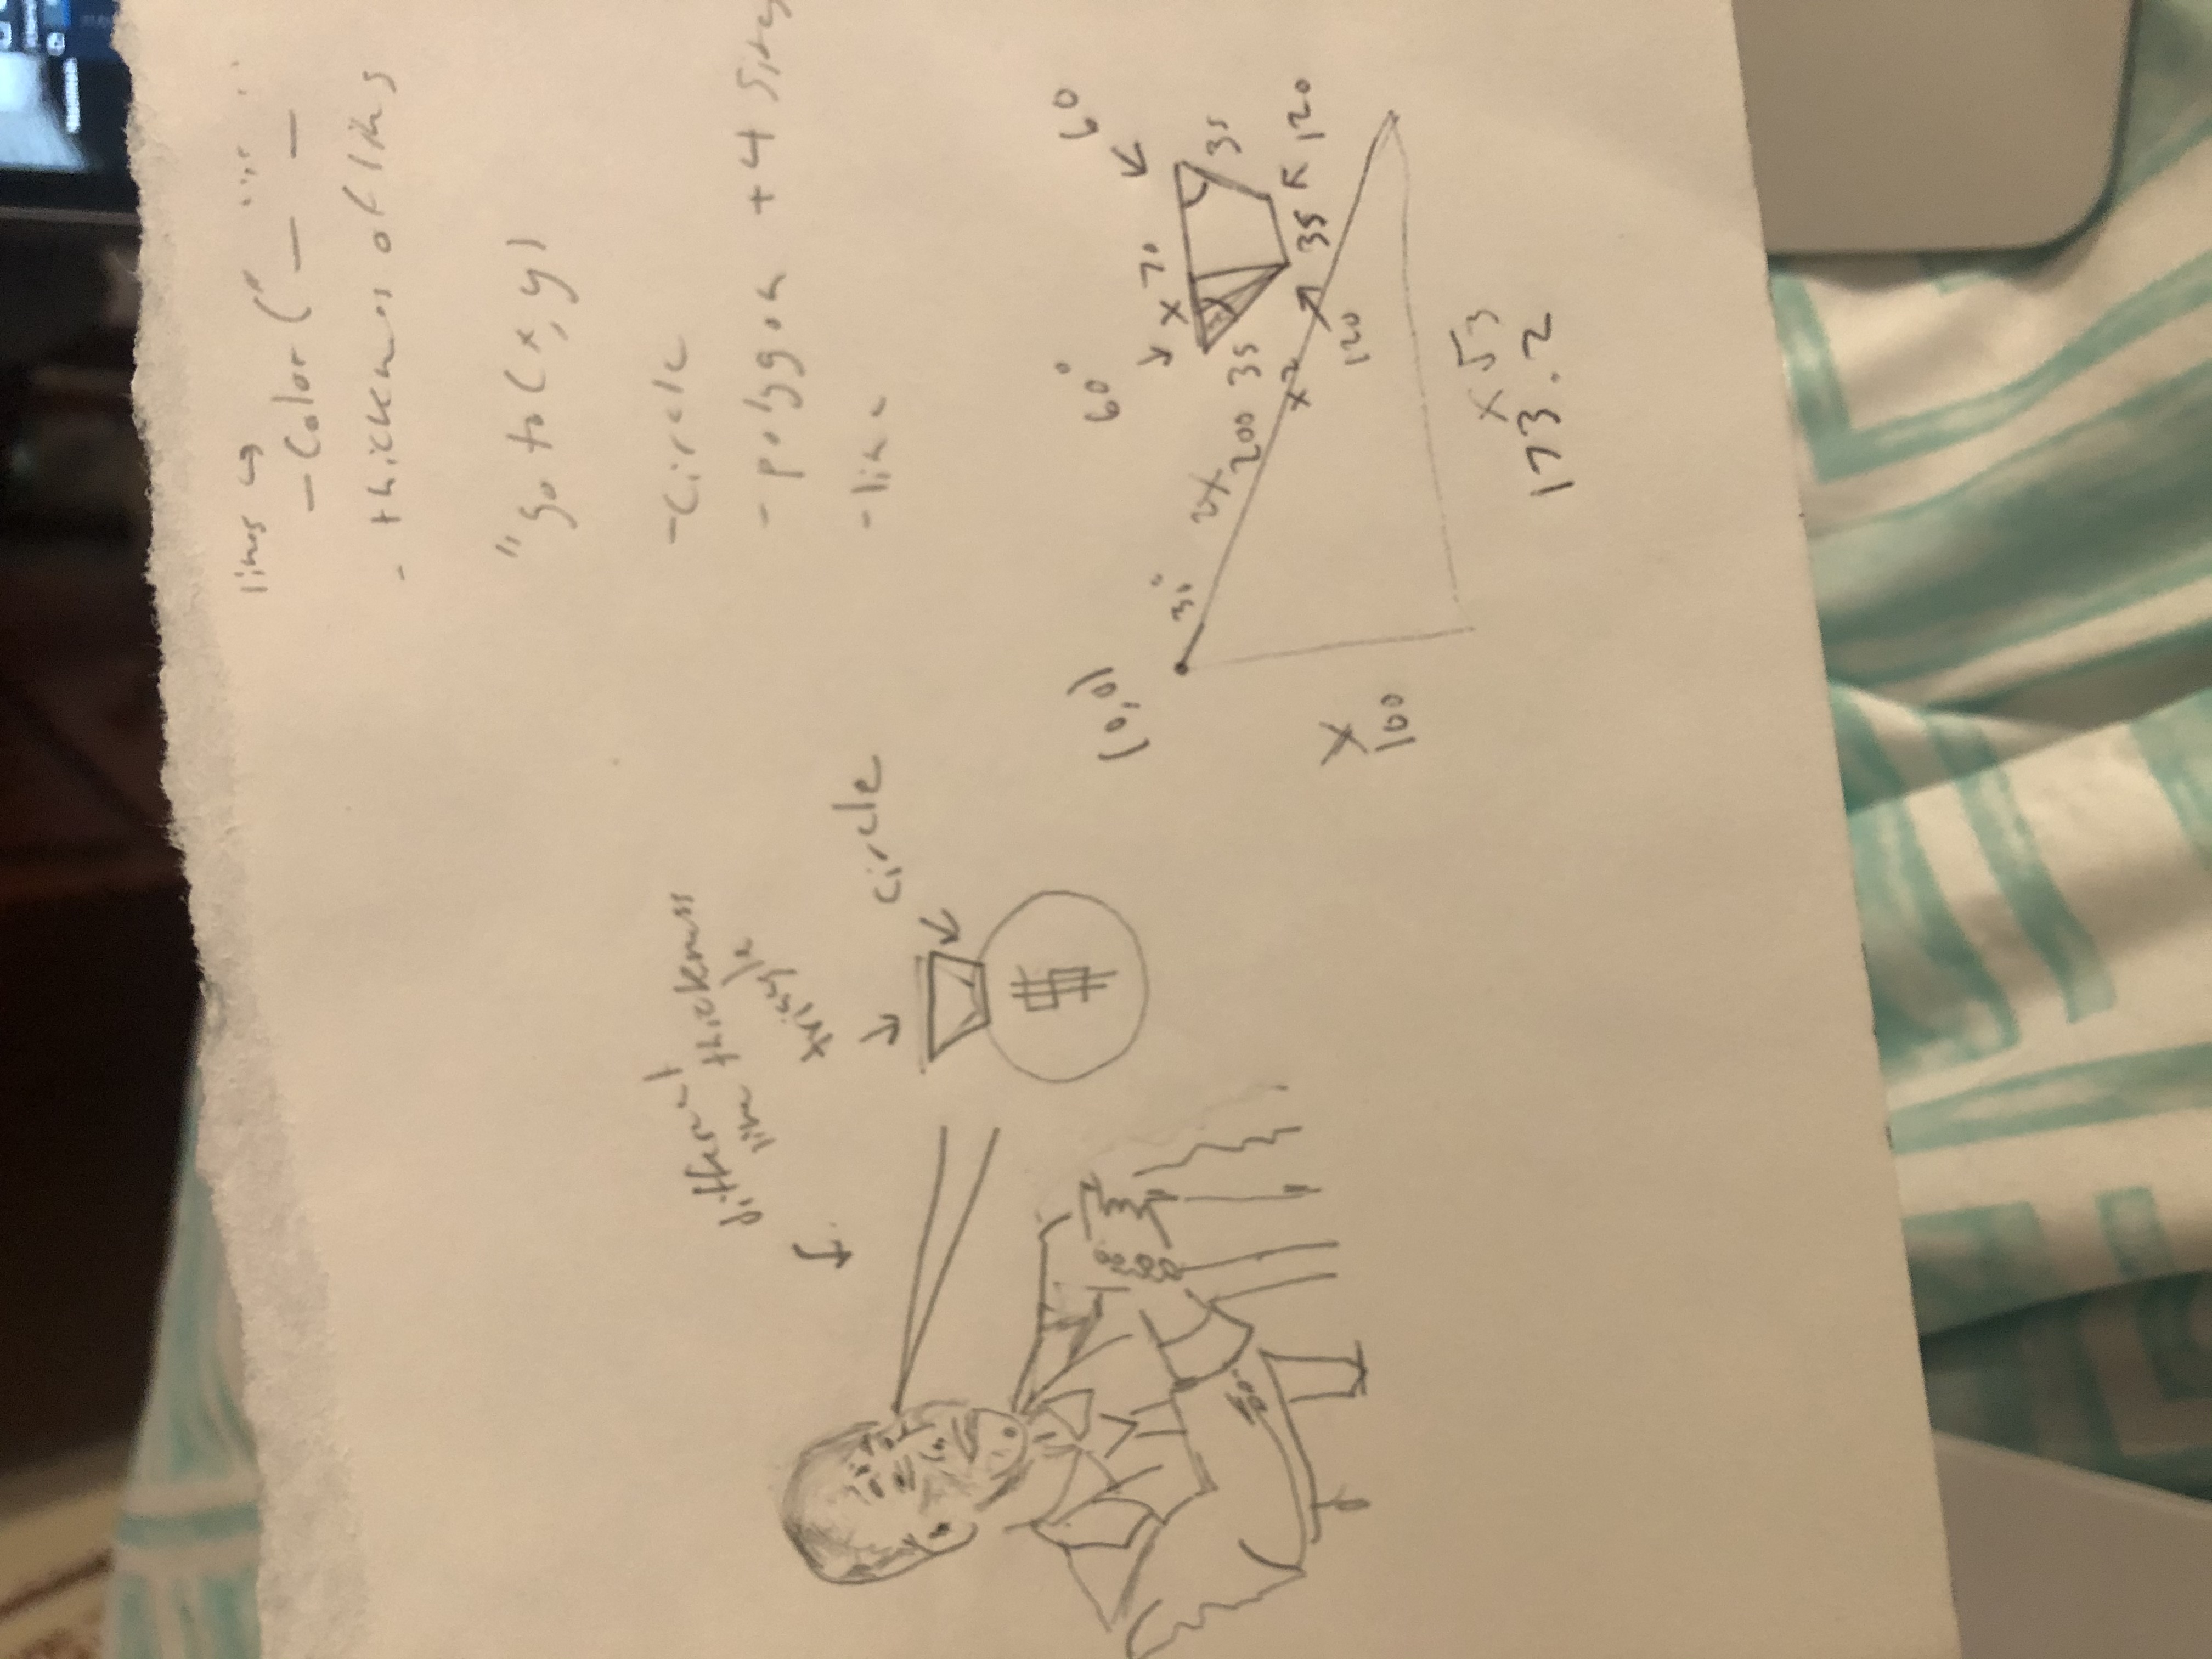 lines ↪
- Color ("— —
- thickness of lines
"go to (x, y)
- circle
- polygon +4 sides
- line
different
line thickness
triangle
circle
$
(0,0)
30°
2x
200
x2
x
100
x√3
173.2
60°
60
x 70
35
35
35
120
120